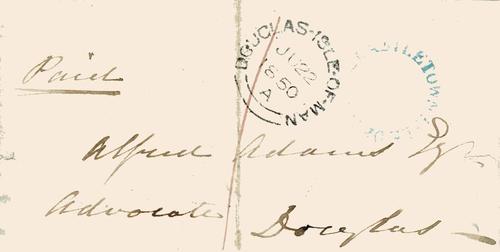 Paid
DOUGLAS-ISLE-OF-MAN
JU 22
1850
A
CASTLETOWN
Alfred Adams Esqr
Advocate Douglas